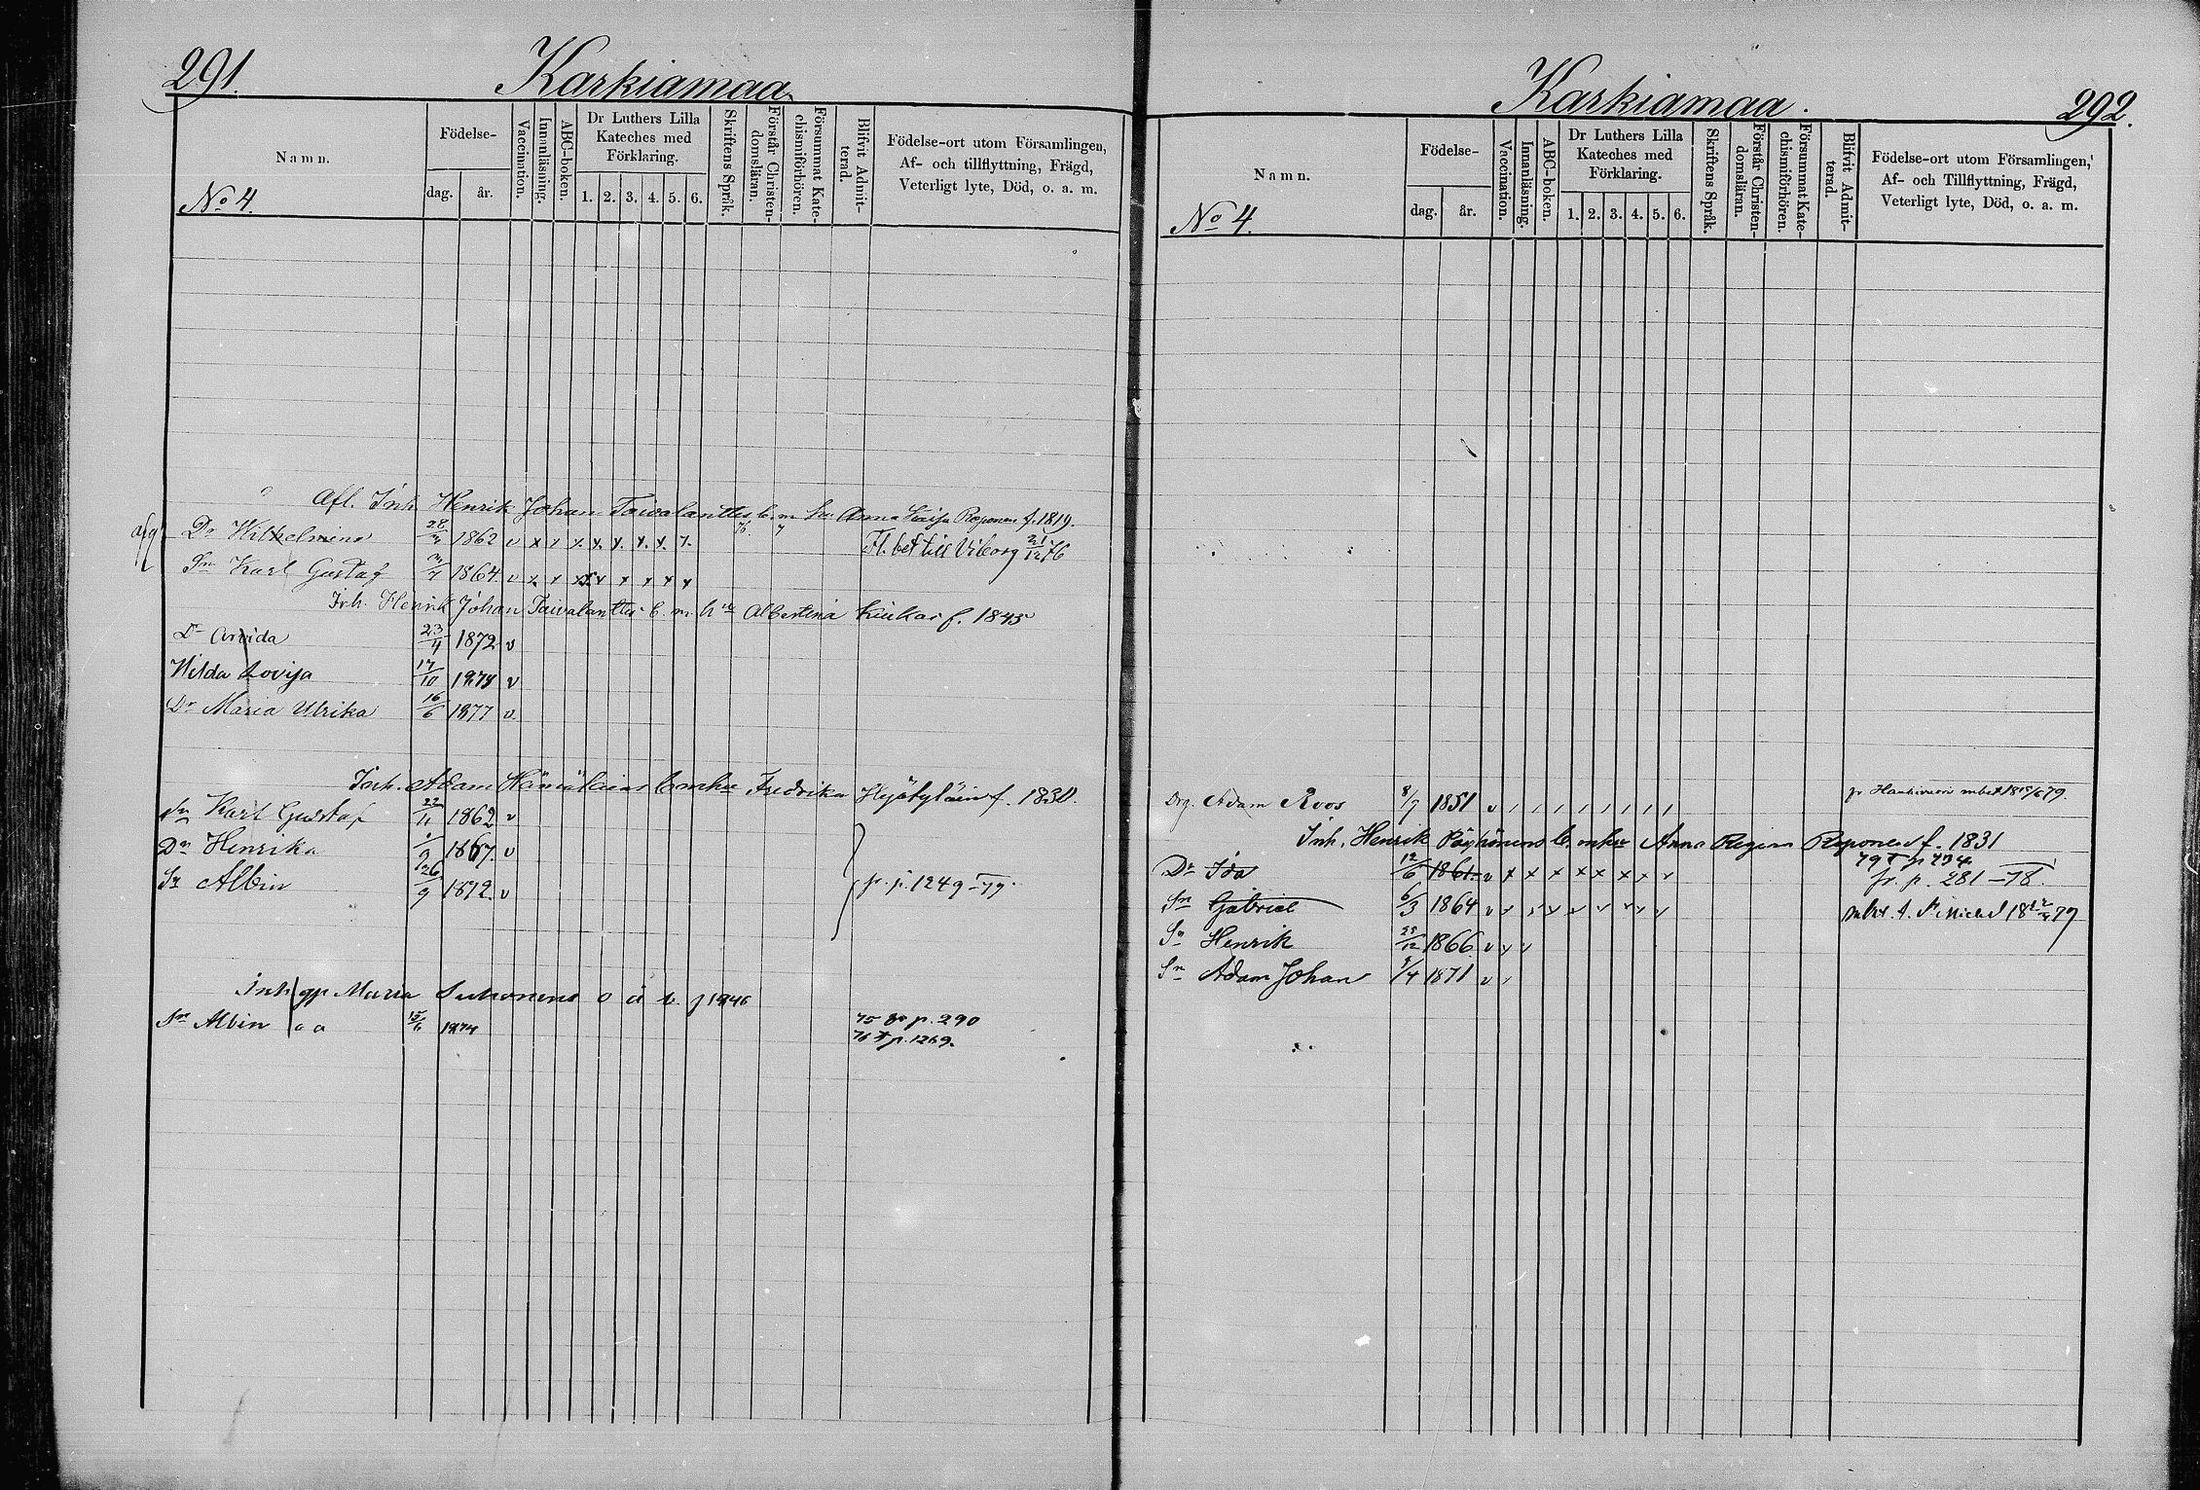 291.
Karkiamaa
Namn.
No 4.
Födelse-
dag. år.
Vaccination.
Innanläsning.
ABC-boken.
Dr Luthers Lilla
Kateches med
Förklaring.
1. 2. 3. 4. 5. 6.
Skriftens Språk.
Förstår Christen-
domsläran.
Försummat Kate-
chismiförhören.
Blifvit Admit-
terad.
Födelse-ort utom Församlingen,
Af- och tillflyttning, Frägd,
Veterligt lyte, Död, o. a. m.
Afl. Inh. Henrik Johan Taivalanttis b. m. hu Anna Kaisa Reponen f. 1819.
Dr Wilhelmina 28/3 1862 v x x x. x. x. x. x. x. Fl. bet till Viborg 21/12 76
Sn Karl Gustaf 1864 v x. x x x x x x x
Inh. Henrik Johan Taivalanttis b. m. h Albertina Kiukas f. 1845
Dr Arvida 23/4 1872 v
Hilda Lovisa 17/10 1874 v
Dr Maria Ulrika 16/6 1877 v.
Inh. Adam b m hu Fredrika f. 1830.
Sn Karl Gustaf 22/11 1862 v
Dr Henrika 1867. v
Sn Albin 26/9 1872. v fr. p. 1249 - 77.
Inh gp Maria o ä b. f 1846
Sn Albin o ä 15/6 1874 75 fr p. 290
76 t p. 1269.
Karkiamaa.
292.
Namn.
No 4.
Födelse-
dag. år.
Vaccination.
Innanläsning.
ABC-boken.
Dr Luthers Lilla
Kateches med
Förklaring.
1. 2. 3. 4. 5. 6.
Skriftens Språk.
Förstår Christen-
domsläran.
Försummat Kate-
chismiförhören.
Blifvit Admit-
terad.
Födelse-ort utom Församlingen,
Af- och Tillflyttning, Frägd,
Veterligt lyte, Död, o. a. m.
Drg. Adam Roos 8/7 1851 v
Inh. Henrik Pöyhönens b. m hu Anna Regina Reponen f. 1831
79 t p 794
Dr Ida 12/6 1861. v x x x x x x x x fr. p. 281 - 78.
Sn Gabriel 6/3 1864 v mbet. t. St Michel 18 79
Sn Henrik 25/12 1866 v
Sn Adam Johan 1871 v